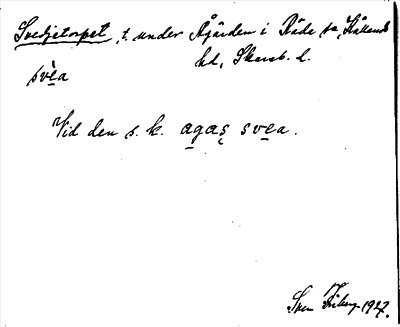 Svedjetorpet, t. under Ågården i Råda sn, Kållands
hd, Skarab. l.
svèa
Vid den s. k. agas svea.
Sven Friberg 1927.